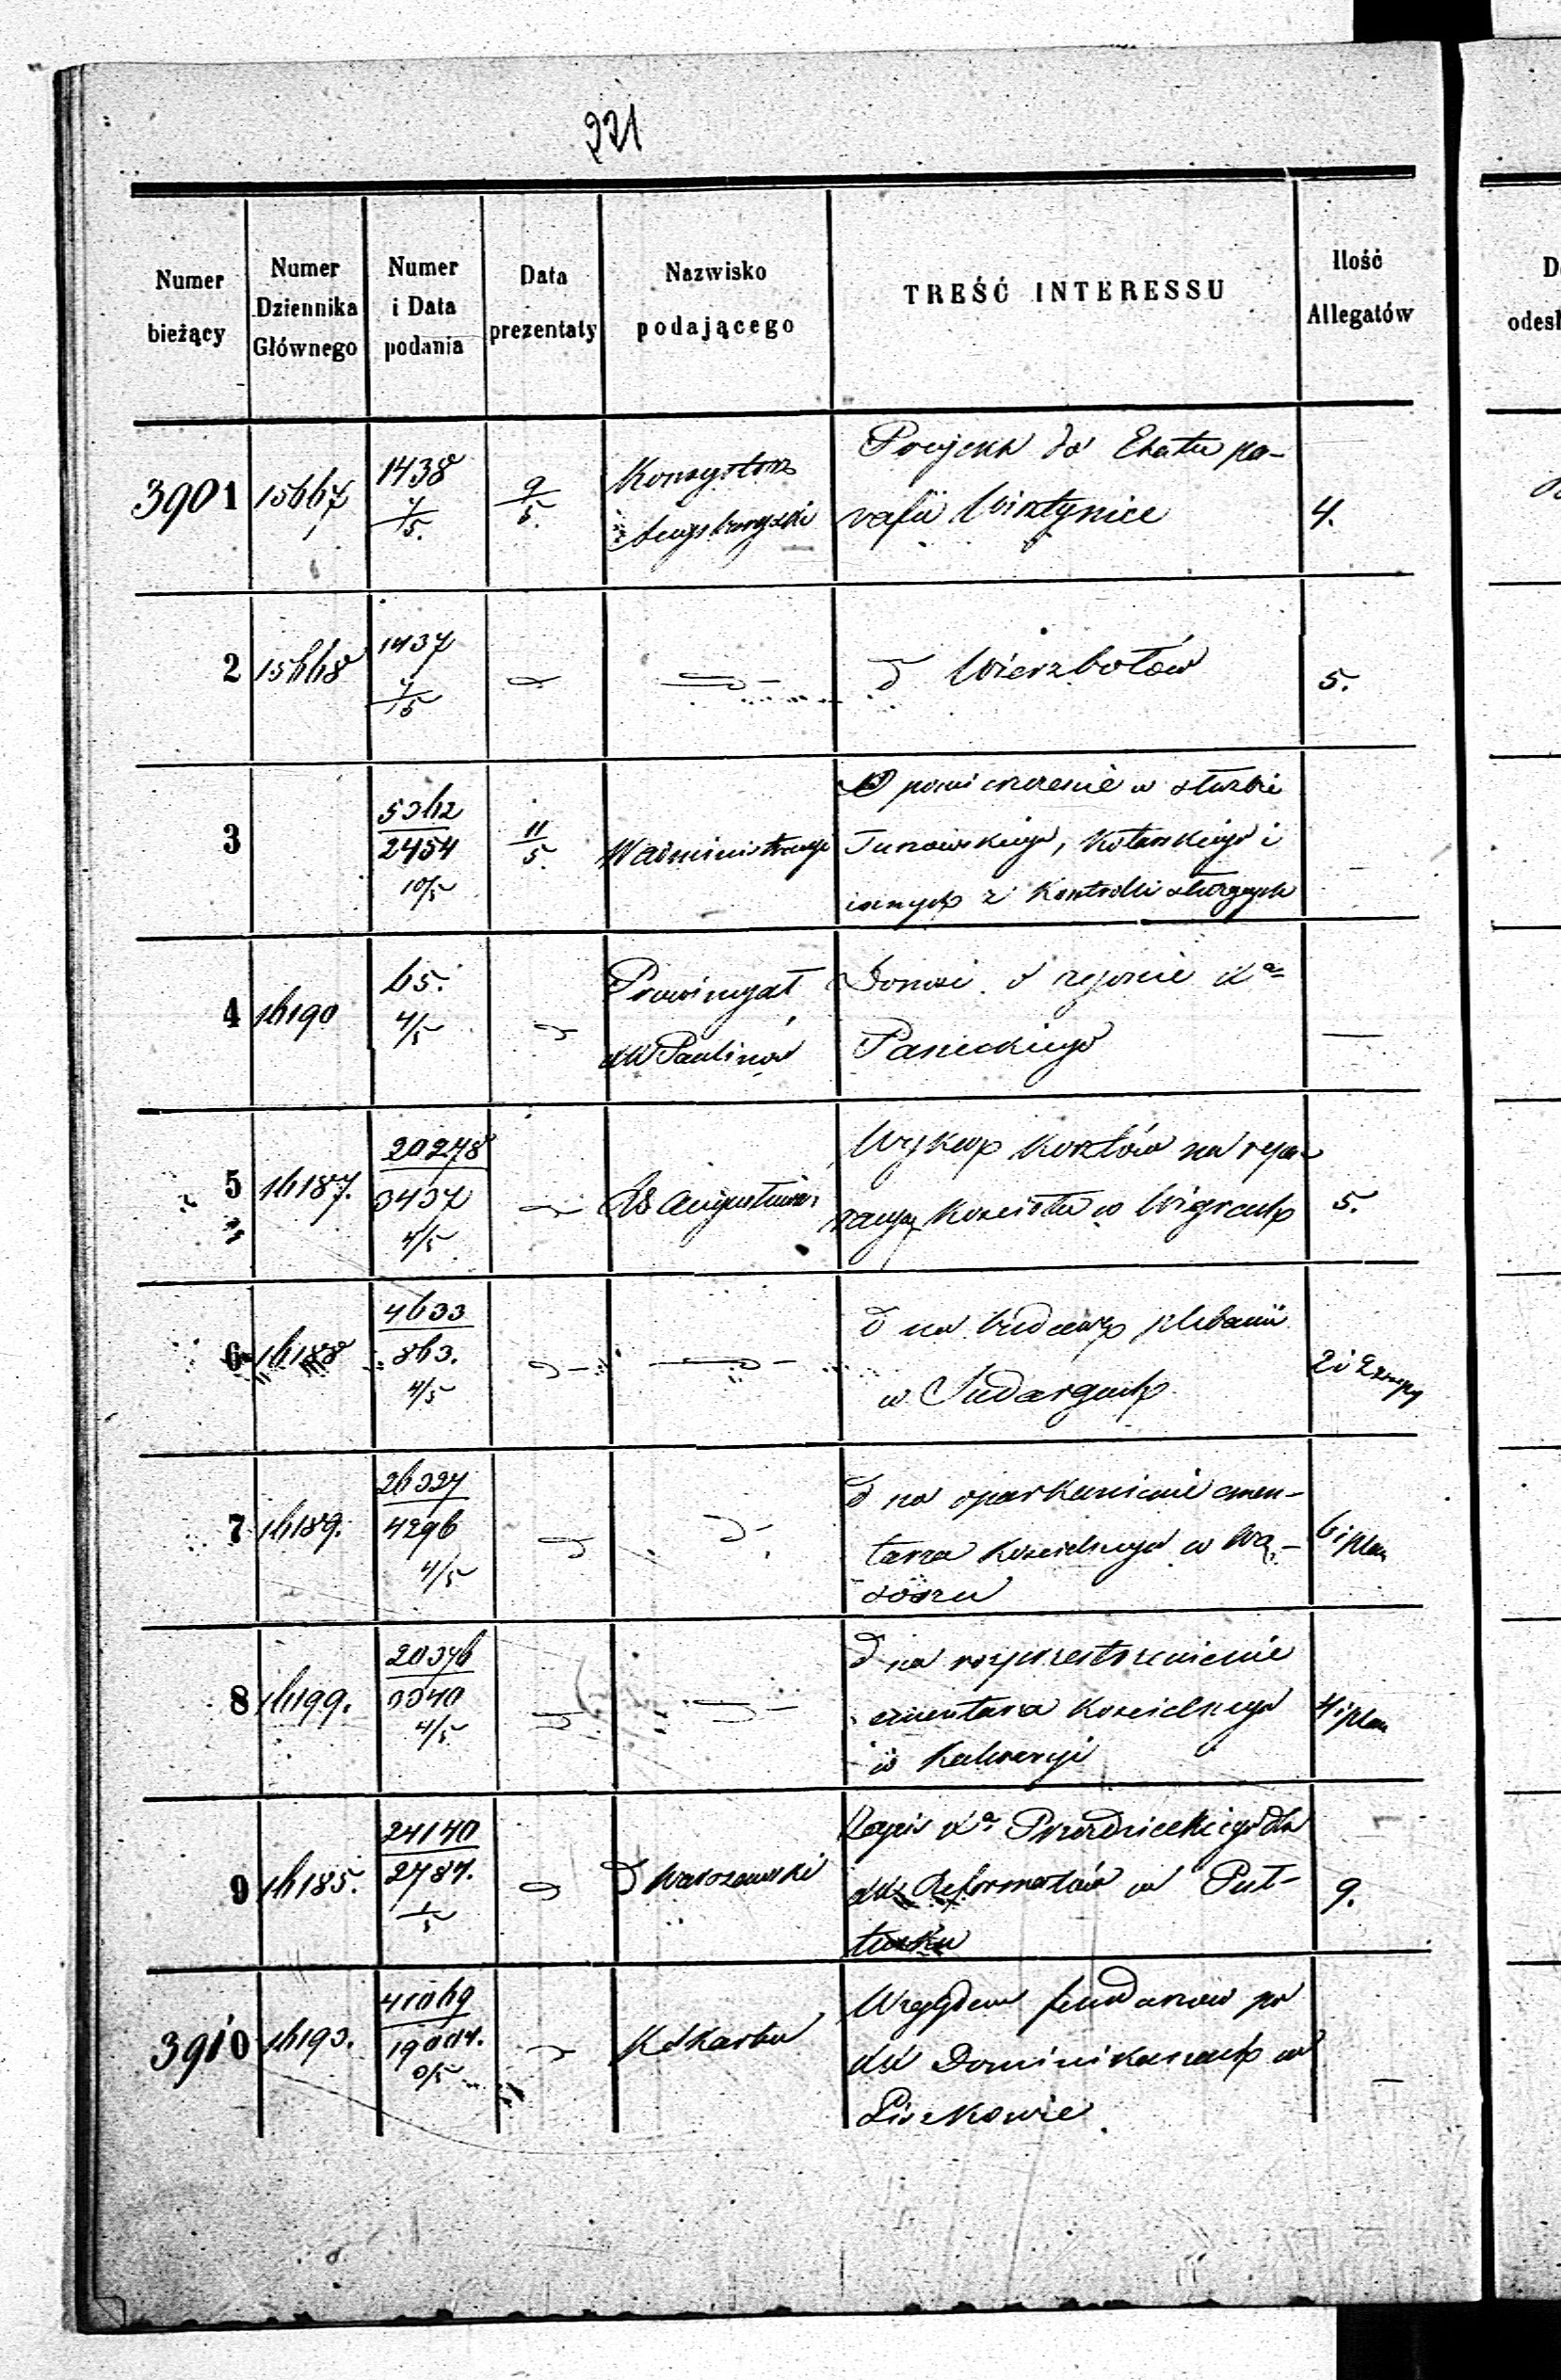 221
Numer bieżący
Numer Dziennika Głównego
Numer i Data podania
Data prezentaty
Nazwisko podającego
TREŚĆ INTERESSU
Ilość Allegatów
3901 15667 1438 4/5 9/5 Konsystorz Augustowski
Projekt do Etatu pa-
rafii Wisztyniec
4.
2 15668 1437 4/5
d Wierzbołów
5.
3 5362 2454 10/5 11/5 W administracyi
O pomieszczenie w służbie
innych z Kontrolli służących
4 16190 65. 4/5 Prowincyał
XX Paulinów
Donosi o zgonie Xa
Pasieckiego
—
5 16187. 20278 3437 4/5
Wykaz kosztów na repa-
racyą Kościoła w Wigrach
5.
6 16188 4633 863. 4/5
d na budowę plebanii
w Sudargach
7 16189. 26327 4296 4/5
d na oparkanienie cmen-
tarza Kościelnego w Wą-
soszu
6 i plan
8 16199. 20376 3340 4/5
d na rozprzestrzenienie
cmentarza Kościelnego
w Kalwaryi
4 i plan
9 16185. 24140 2787. 1/5 d Warszawski
Zapis Xa Przeździeckiego dla
XX Reformatów w Puł-
tusku
9.
3910 16193. 41069 K Skarbu
Względem fundaszów po
XX Dominikanach w
—